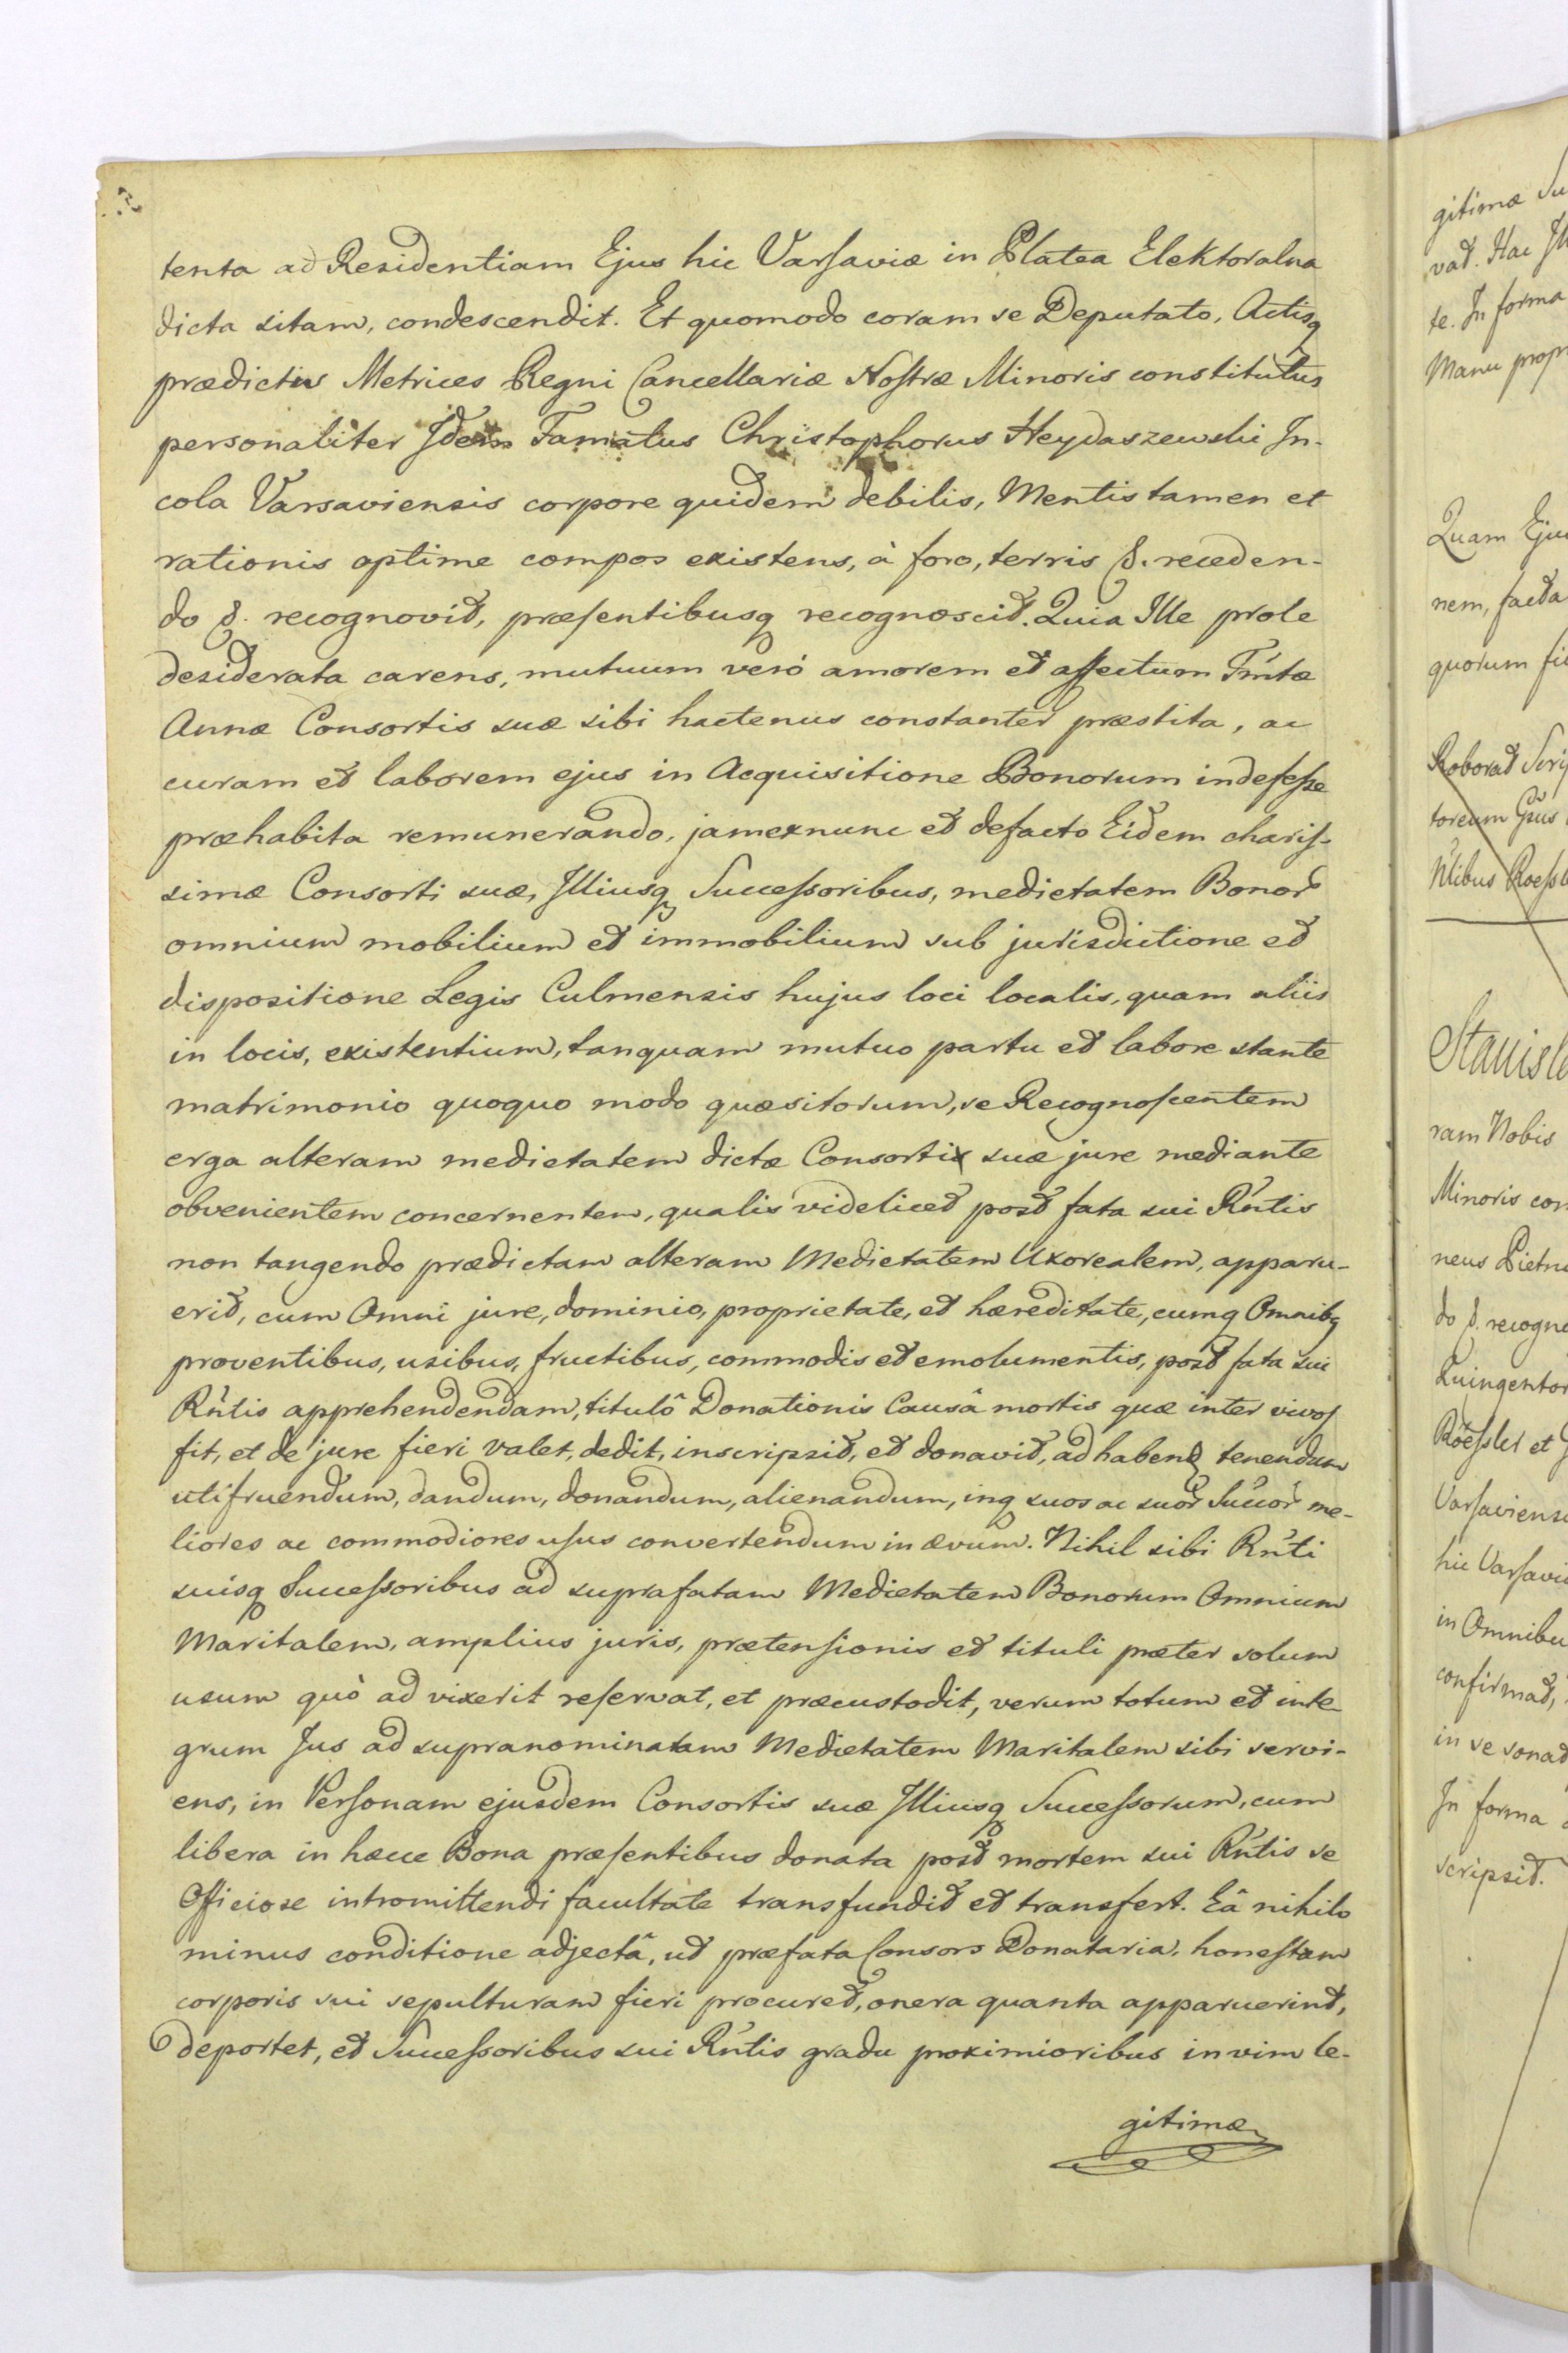 tenta ad Residentiam Ejus hic Varsaviæ in Platea Elektoralna
dicta sitam, condescendit. Et quomodo coram se Deputato, Actisq
prædictis Metrices Regni Cancellariæ Nostræ Minoris constitutus
personaliter Idem Famatus Christophorus Heydaszewski In-
cola Varsaviensis corpore quidem debilis, Mentis tamen et
rationis optime compos existens, à foro, terris &. receden-
do &. recognovit, præsentibusq recognoscit. Quia Ille prole
desiderata carens, mutuum verò amorem et affectum Fmtæ
Annæ Consortis suæ sibi hactenus constanter præstita, ac
curam et laborem ejus in Acquisitione Bonorum indefesse
præhabita remunerando, jamexnunc et defacto Eidem charis-
simæ Consorti suæ, Illiusq Successoribus, medietatem Bonor
omnium mobilium et immobilium sub jurisdictione et
dispositione Legis Culmensis hujus loci localis, quam aliis
in locis, existentium, tanquam mutuo partu et labore stante
matrimonio quoquo modo quæsitorum, se Recognoscentem
erga alteram medietatem dictæ Consorti suæ jure mediante
obvenientem concernentem, qualis videlicet post fata sui Rntis
non tangendo prædictam alteram Medietatem Uxorealem, apparu-
erit, cum Omni jure, dominio, proprietate, et hæreditate, cumq Omnibq
proventibus, usibus, fructibus, commodis et emolumentis, post fata sui
Rntis apprehendendam, titulô Donationis Causâ mortis quæ inter vivos
fit, et de jure fieri valet, dedit, inscripsit, et donavit, ad habend tenendum
utifruendum, dandum, donandum, alienandum, inq suos ac suor Succor me-
liores ac commodiores usus convertendum in ævum. Nihil sibi Rnti
suisq Successoribus ad suprafatam Medietatem Bonorum Omnium
Maritalem, amplius juris, prætensionis et tituli præter solum
usum quò ad vixerit reservat, et præcustodit, verum totum et inte
grum Jus ad supranominatam Medietatem Maritalem sibi servi-
ens, in Personam ejusdem Consortis suæ Illiusq Successorum, cum
libera in hæcce Bona præsentibus donata post mortem sui Rntis se
Officiose intromittendi facultate transfundit et transfert. Eâ nihilo
minus conditione adjectâ, ut præfata Consors Donataria, honestam
corporis sui sepulturam fieri procuret, onera quanta apparuerint,
deportet, et Successoribus sui Rntis gradu proximioribus in vim le-
gitimæ
gitimæ Su
vat. Hac
te. In forma
Manu prop
Quam Eju
nem, facta
quorum fi
Roborat Scri
toreum
Roessl
Stanisla
ram Nobis
Minoris con
neus Pietr
do &. recogn
Quingentor
Roessler et
Varsaviens
hic Varsavi
in Omnibu
confirmat,
in se sonat
In forma
scripsit.